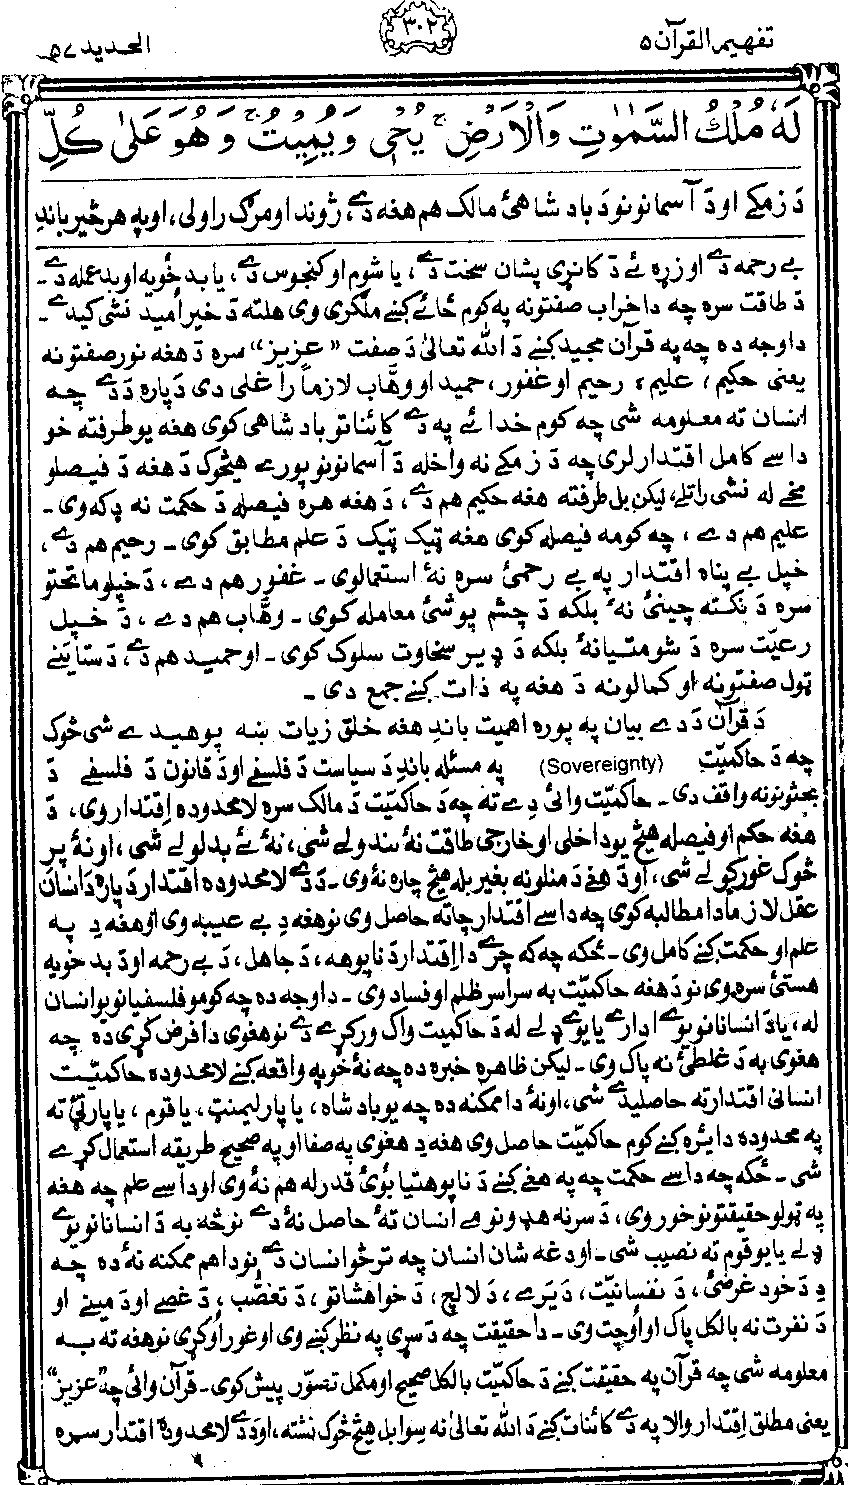 تفهیم القرآن ۵
۳۰۲
الحدید ۵۷
لَهٗ مُلْكُ السَّمٰوٰتِ وَالْاَرْضِ ۚ يُحْيٖ وَيُمِيْتُ ۚ وَهُوَ عَلٰى كُلِّ
دَ زمکے او دَ آسمانونو دَ بادشاهئ مالک هم هغه دے، ژوند او مرګ راولی، او په هر څیز باندِ
بے رحمه دے او زړه ئے دَ کانړی پشان سخت دے، یا شوم او کنجوس دے، یا بد خُویه او بد عمله دے۔
دَ طاقت سره چه دا خراب صفتونه په کوم ځائے کښے ملګری وی هلته دَ خیر اُمید نشی کیدے۔
دا وجه ده چه په قرآن مجید کښے دَ اللّٰه تعالیٰ دَ صفت "عزیز" سره دَ هغه نور صفتونه
یعنی حکیم، علیم، رحیم او غفور، حمید او وهّاب لازماً راغلی دی دَ پاره دَ دے چه
انسان ته معلومه شی چه کوم خدائے په دے کائناتو بادشاهی کوی هغه یو طرفته خو
داسے کامل اقتدار لری چه دَ زمکے نه واخله دَ آسمانونو پورے هیڅوک دَ هغه دَ فیصلو
مخے له نشی راتلے، لیکن بل طرفته هغه حکیم هم دے، دَ هغه هره فیصله دَ حکمت نه ډکه وی۔
علیم هم دے، چه کومه فیصله کوی هغه ټیک ټیک دَ علم مطابق کوی۔ رحیم هم دے،
خپل بے پناه اقتدار په بے رحمئ سره نهٔ استعمالوی۔ غفور هم دے، دَ خپلو ماتحتو
سره دَ نکته چینئ نهٔ بلکه دَ چشم پوشئ معامله کوی۔ وهّاب هم دے، دَ خپل
رعیّت سره دَ شومتیا نهٔ بلکه دَ ډیر سخاوت سلوک کوی۔ او حمید هم دے، دَ ستائنے
ټول صفتونه او کمالونه دَ هغه په ذات کښے جمع دی۔
دَ قرآن دَ دے بیان په پوره اهمیت باندِ هغه خلق زیات ښه پوهیدے شی څوک
چه دَ حاکمیّت (Sovereignty) په مسئله باندِ دَ سیاست دَ فلسفے او دَ قانون دَ فلسفے دَ
بحثونو نه واقف دی۔ حاکمیّت وائی دے ته چه دَ حاکمیّت دَ مالک سره لا محدوده اِقتدار وی، دَ
هغه حکم او فیصله هیڅ یو داخلی او خارجی طاقت نهٔ بندولے شی، نهٔ ئے بدلولے شی، او نهٔ پر
څوک غور کولے شی، او دَ هغے دَ منلو نه بغیر بله هیڅ چاره نهٔ وی۔ دَ دے لا محدوده اقتدار دَ پاره دَ انسان
عقل لازماً دا مطالبه کوی چه داسے اقتدار چاته حاصل وی نو هغه دِ بے عیبه وی او هغه دِ په
علم او حکمت کښے کامل وی۔ ځکه چه که چرے دا اِقتدار دَ ناپوهه، دَ جاهل، دَ بے رحمه او دَ بد خویه
هستئ سره وی نو دَ هغه حاکمیّت به سراسر ظلم او فساد وی۔ دا وجه ده چه کومو فلسفیانو یو انسان
له، یا دَ انسانانو یوے ادارے یا یوے ډلے له دَ حاکمیت واک ورکړے دے نو هغوی دا فرض کړی ده چه
هغوی به دَ غلطئ نه پاک وی۔ لیکن ظاهره خبره ده چه نهٔ خو په واقعه کښے لا محدوده حاکمیّت
انسانی اقتدار ته حاصلیدے شی، او نهٔ دا ممکنه ده چه یو بادشاه، یا پارلیمنټ، یا قوم، یا پارټئ ته
په محدوده دائره کښے کوم حاکمیّت حاصل وی هغه دِ هغوی په صفا او په صحیح طریقه استعمال کړے
شی۔ ځکه چه داسے حکمت چه په هغے کښے دَ ناپوهتیا بُوئ قدرله هم نهٔ وی او داسے علم چه هغه
په ټولو حقیقتونو خور وی، دَ سر نه هډو نومے انسان تهٔ حاصل نهٔ دے نو څه به دَ انسانانو یوے
ډلے یا یو قوم ته نصیب شی۔ او دغه شان انسان چه تر څو انسان دے نو دا هم ممکنه نهٔ ده چه
دِ دَ خود غرضئ، دَ نفسانیّت، دَ یرے، دَ لالچ، دَ خواهشاتو، دَ تعصّب، دَ غصے او دَ مینے او
دَ نفرت نه بالکل پاک او اُوچت وی۔ دا حقیقت چه دَ سړی په نظر کښے وی او غور اُوکړی نو هغه ته به
معلومه شی چه قرآن په حقیقت کښے دَ حاکمیّت بالکل صحیح او مکمل تصوّر پیش کوی۔ قرآن وائی چه "عزیز"
یعنی مطلق اِقتدار والا په دے کائنات کښے دَ اللّٰه تعالیٰ نه سِوا بل هیڅ څوک نشته، او دَ دے لا محدوده اقتدار سره